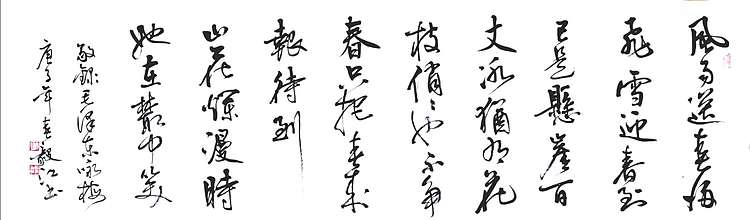 風雨送春歸
飛雪迎春到
已是懸崖百
丈冰猶有花
枝俏俏也不争
春只把春来
報待到
山花爛漫時
她在叢中笑
敬録毛泽东咏梅
庚子年春毅江书